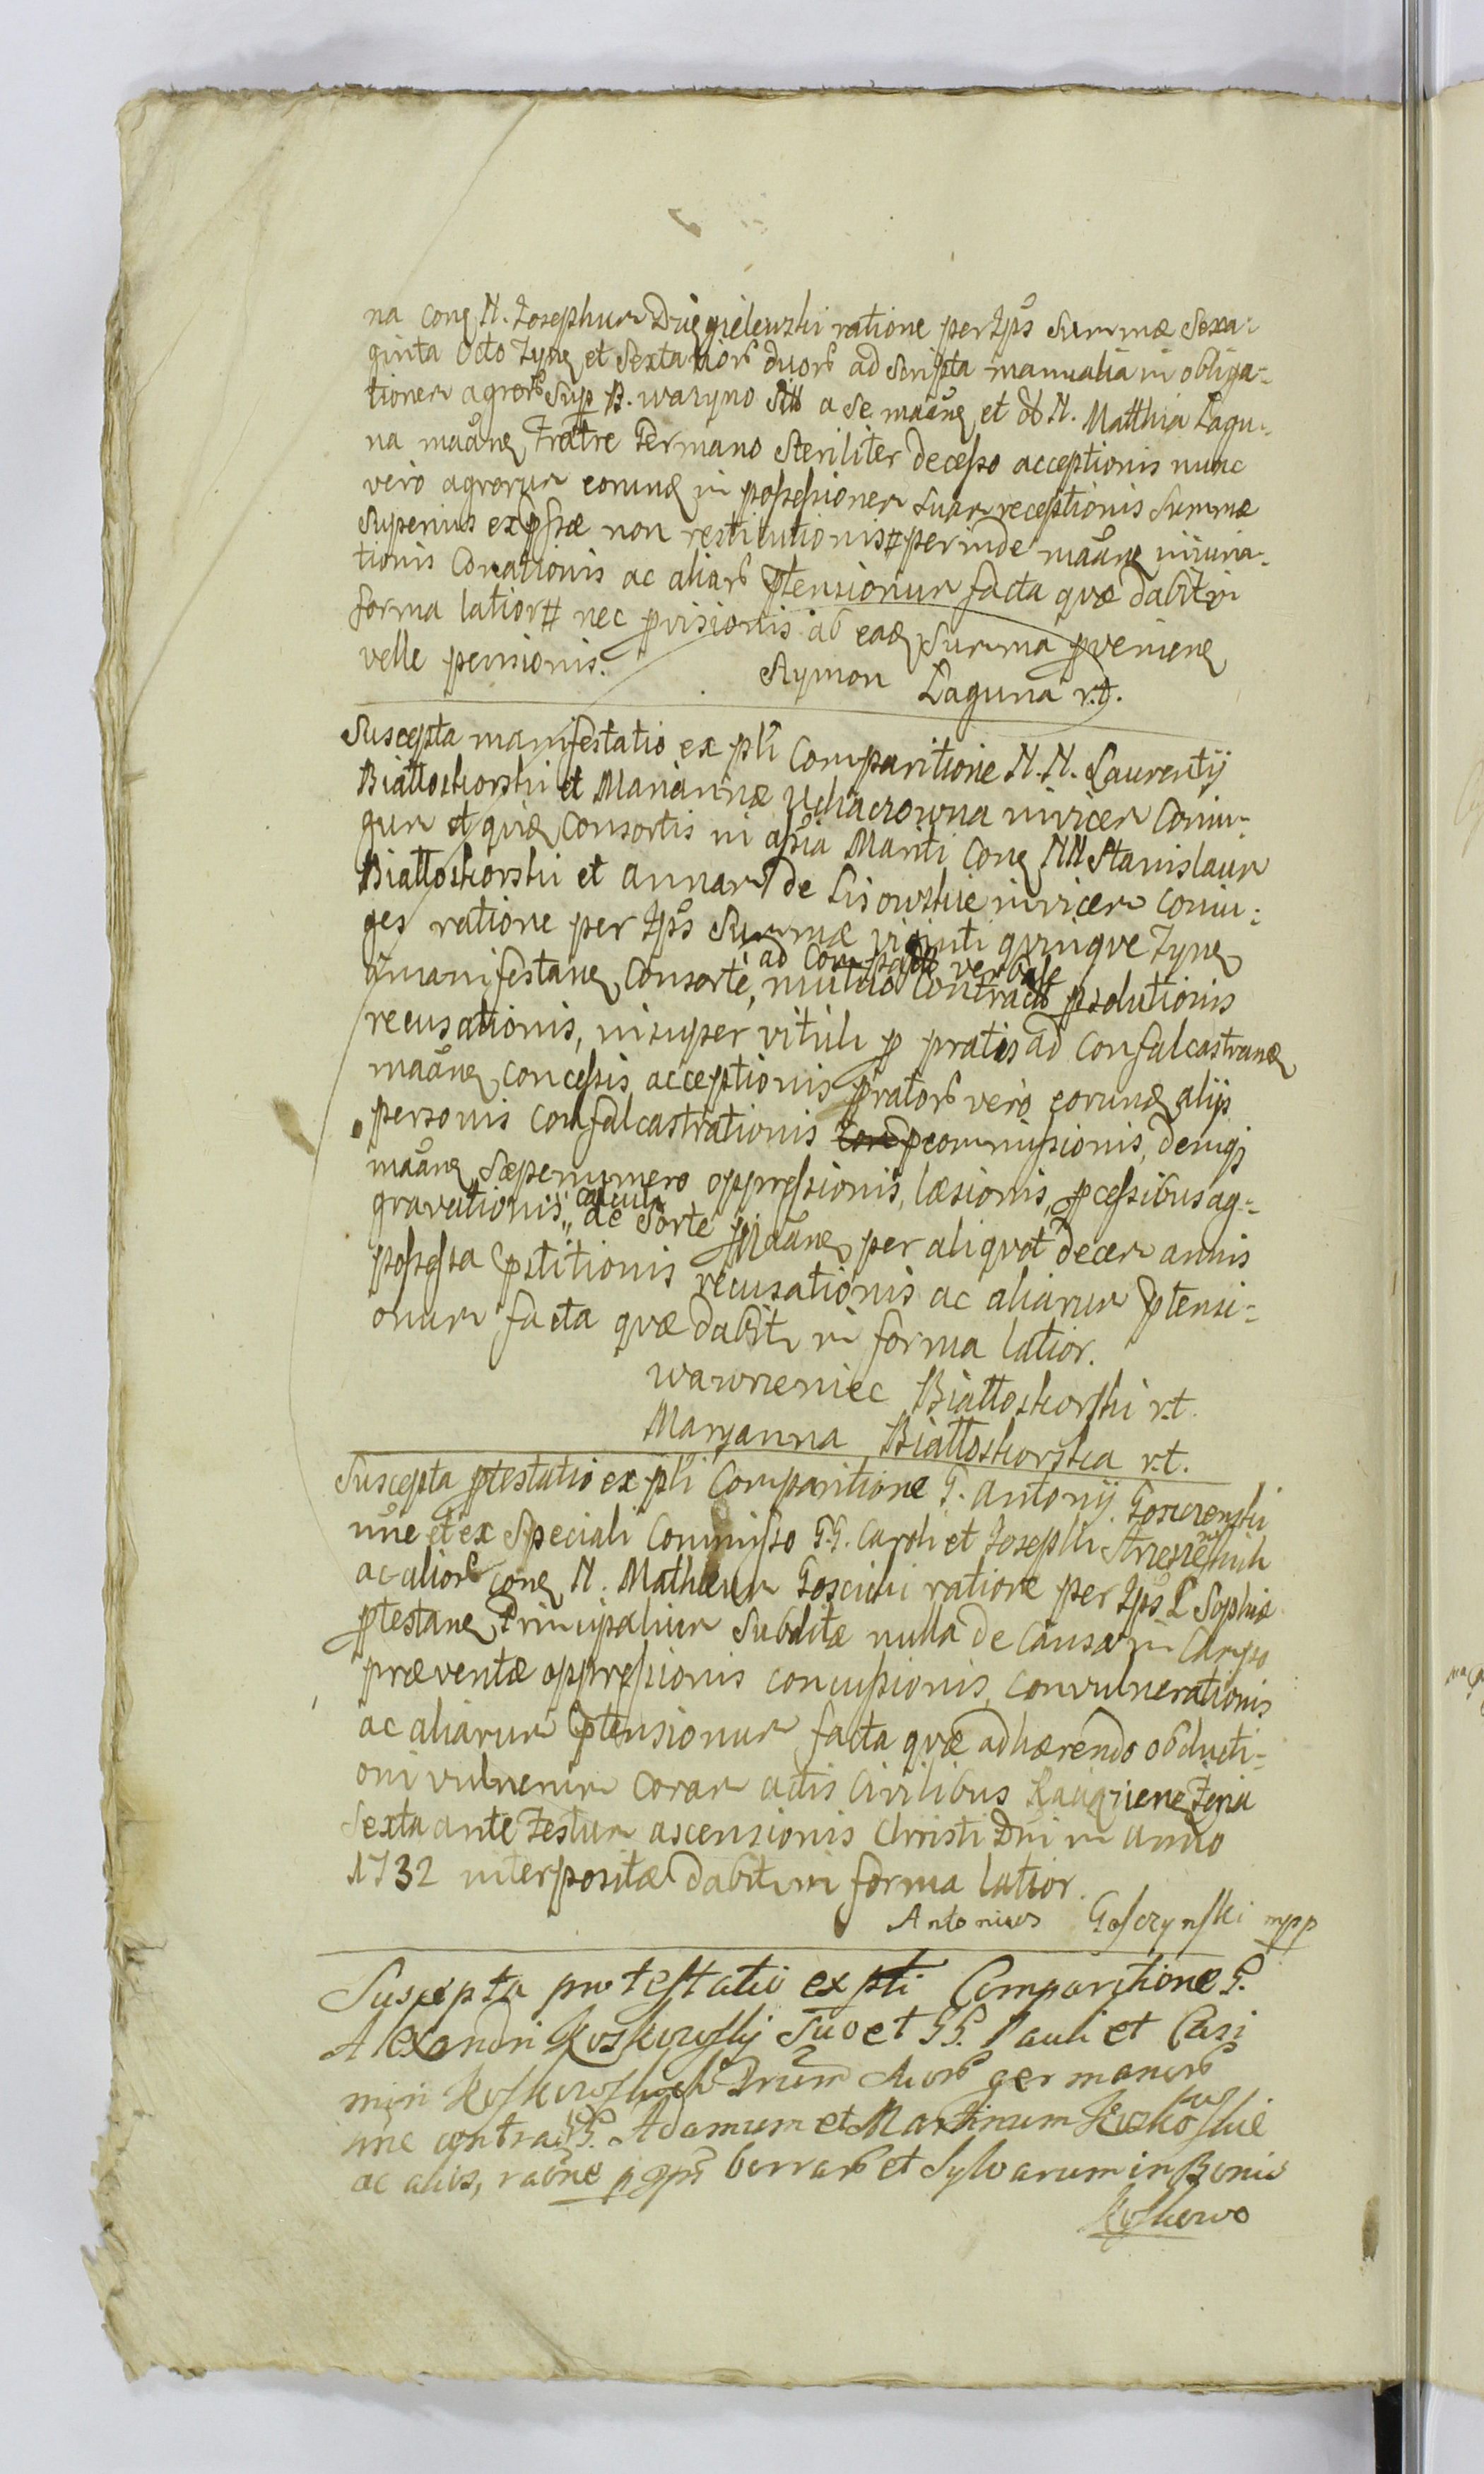 na conq N. Josephum Dzięgielewski ratione per Jps Summæ Sexa-
ginta Octo Tynq et Sextarior duor ad Scripta manualia in obliga-
tionem agror Sup B. waryno Sitt a Se maanq et ab N. Matthia Lagu-
na maanq Fratre Germano Steriliter decesso acceptionis nunc
vero agrorum eorunq in possessionem suam receptionis Summæ
Superius expssæ non restitutionis # perinde maanq iniuria-
tionis Conationis ac aliar ptensionum facta quæ dabitr in
forma latior # nec pvisionis ab eaq Summa pvenienq
velle pensionis.
Szymon Laguna r.t.
Suscepta manifestatio ex pli Comparitione N.N. Laurentij
Białłoskorski et Mariannæ Uchaczowna invicem Coniu-
gum et quiq Consortis in assia Mariti Conq NN Stanislaum
Białłoskorski et annam de Lisowskie invicem Coniu-
ges ratione per Jps Summæ viginti quinque Tynq
ad Compag verbale
qmanifestanq Consorte, mutuo Contract psolutionis
recusationis, insuper vituli p pratis ad Confalcastranq
maanq concessis acceptionis prator vero eorunq alijs
personis Confalcastrationis pcommissionis, deniq
maanq Sæpenumero oppressionis, læsionis, pcessibus ag-
calculi
gravationis, de Sorte Maanq per aliquot decem annis
possessa ptitionis recusationis ac aliarum ptensi-
onum facta quæ dabitr in forma latior.
Wawrzeniec Białłoskorski r.t.
Maryanna Białłoskorska r.t.
Suscepta ptestatio ex pli Comparitione G. Antonij Gosczenski
nne et ex Speciali Commisso G.G. Caroli et Josephi
ac alior conq N. Mathæum Goscicki ratione per Jps L Sophiæ
ptestanq Principalium Subditæ nulla de Causa in Campo
præventæ oppressionis concussionis, convulnerationis
ac aliarum ptensionum facta quæ adhærendo obducti-
oni vulnerum Coram actis Civilibus Feria
Sexta ante Festum ascensionis Christi Dni in anno
1732 interpositæ dabitr in forma latior.
Antonius Gosczynski mpp
Suscepta protestatio ex pti Comparitione G.
Alexandri Koskowskij Suo et GG. Pauli et Casi
miri Koskowskich Frum duor germanor
nne contra GG. Adamum et Martinum Koskowskie
ac alios, raone p Jps borrar et Sylvarum in Bonis
Koskowo